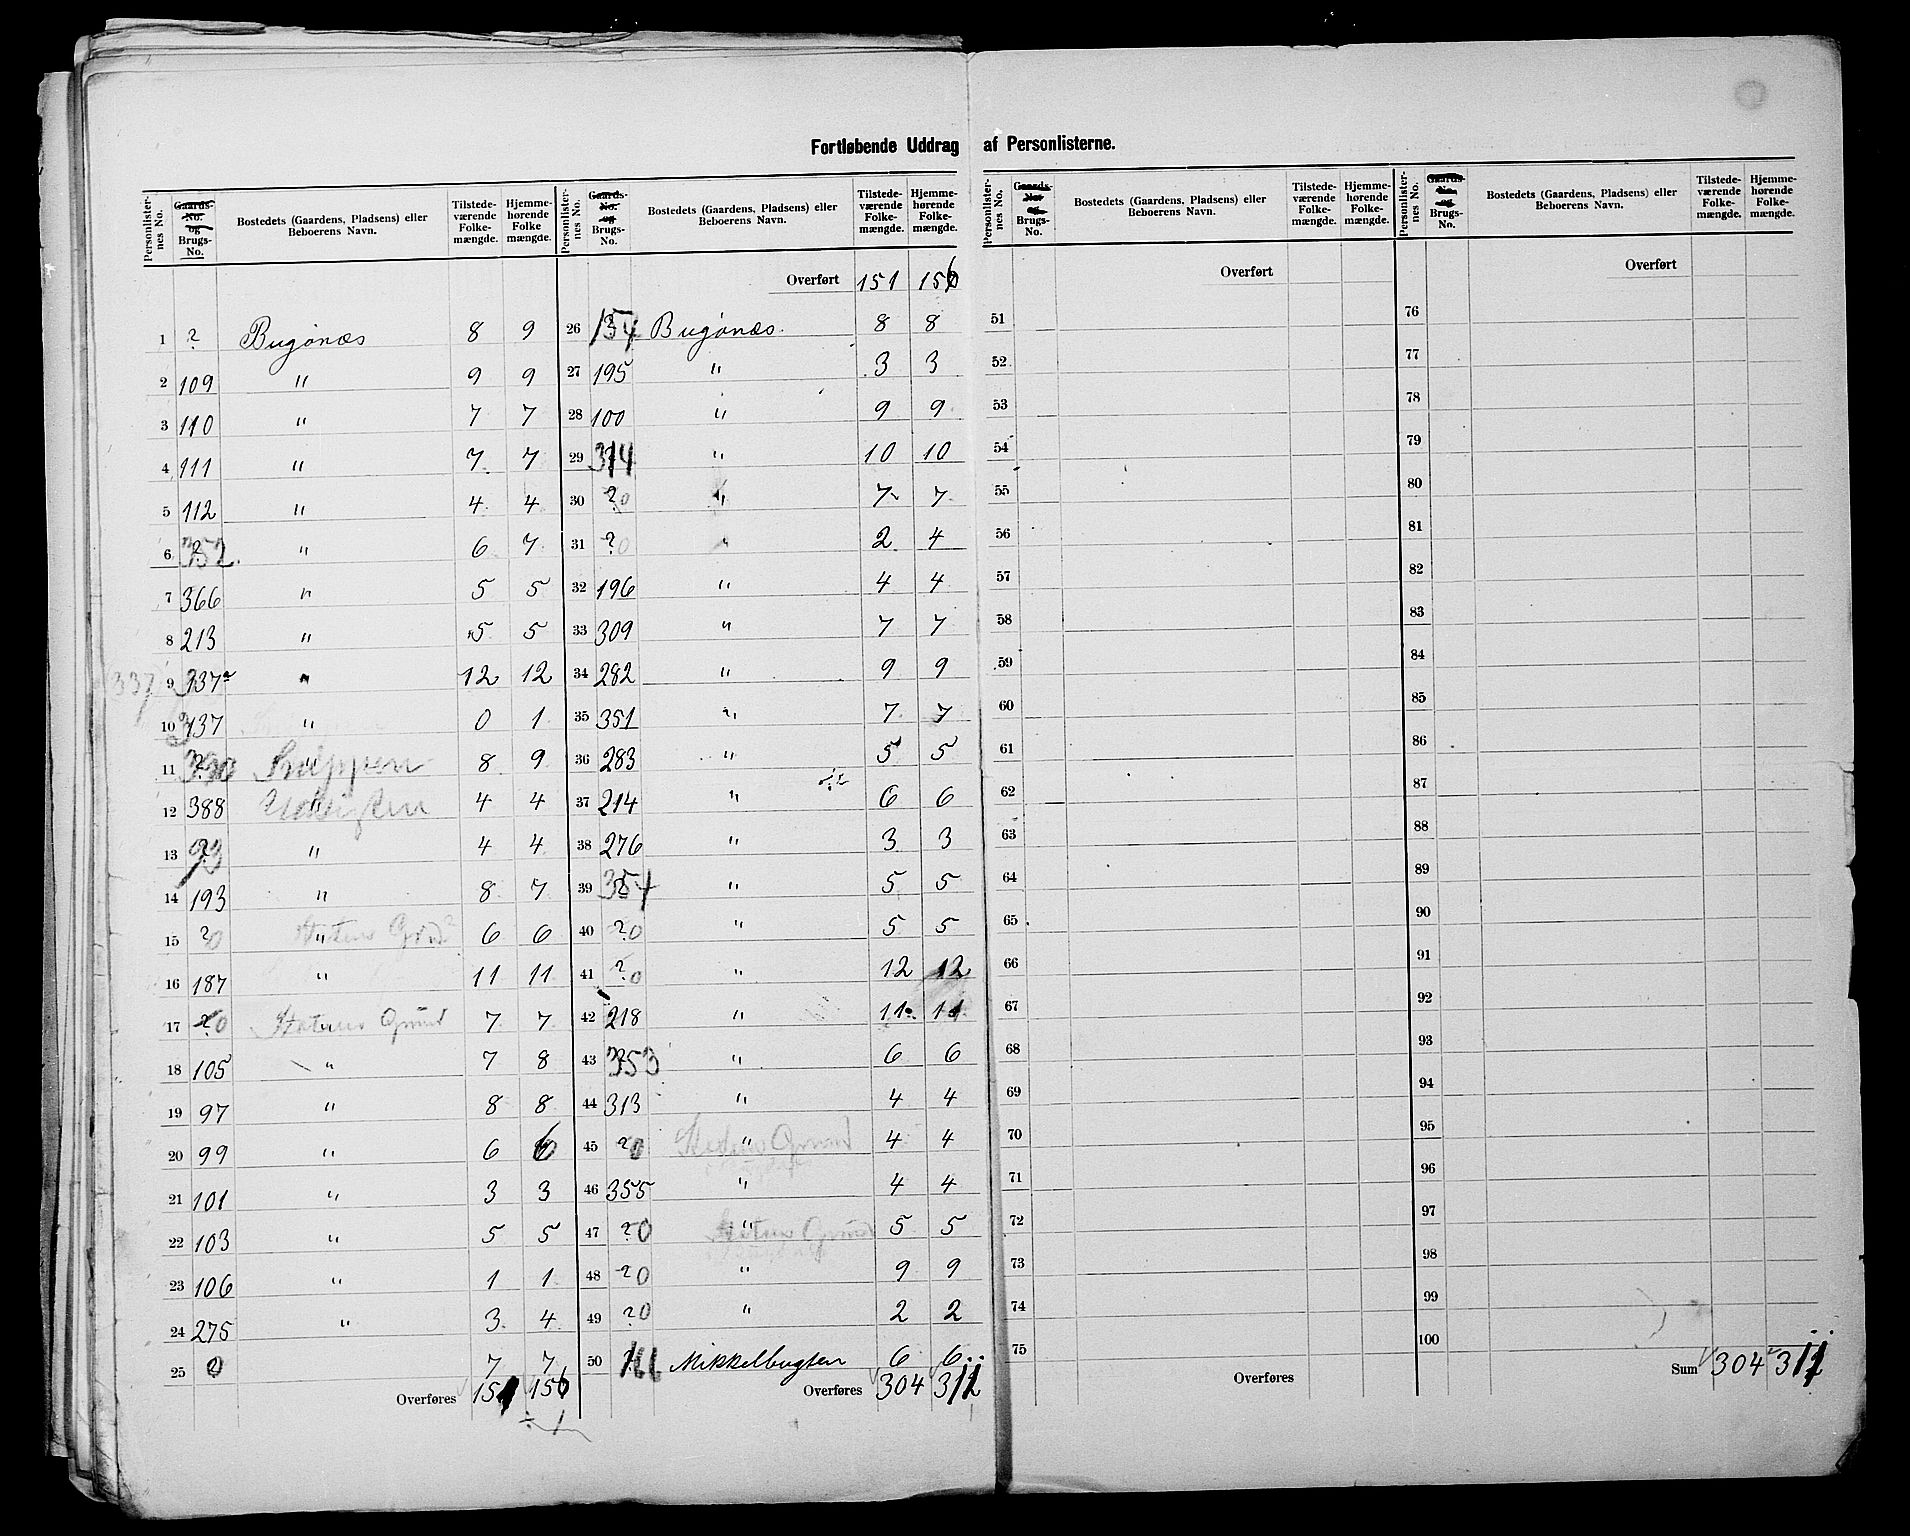 Fortløbende Uddrag af Personlisterne.
Personlister-nes No. | Gaards-No. og Brugs-No. | Bostedets (Gaardens, Pladsens) eller Beboerens Navn. | Tilstede-værende Folke-mængde. | Hjemme-hørende Folke mængde.
1 ? Bugønæs 8 9
2 109 " 9 9
3 110 " 7 7
4 111 " 7 7
5 112 " 4 4
6 352 " 6 7
7 366 " 5 5
8 213 " 5 5
9 337 " 12 12
10 337 " 0 1
11 " 8 9
12 388 " 4 4
13 " 4 4
14 193 " 8 7
15 ?0 " 6 6
16 187 " 11 11
17 ?0 Statens Grund 7 7
18 105 " 7 8
19 97 " 8 8
20 99 " 6 6
21 101 " 3 3
22 103 " 5 5
23 106 " 1 1
24 275 " 3 4
25 ?0 7 7
Overføres 151 156
÷ 1
Personlister-nes No. | Gaards-No. og Beboer-Brugs-No. | Bostedets (Gaardens, Pladsens) eller Beboerens Navn. | Tilstede-værende Folke-mængde. | Hjemme-hørende Folke-mængde.
Overført 151 156
26 154 Bugønæs. 8 8
27 195 " 3 3
28 100 " 9 9
29 314 " 10 10
30 ?0 " 7 7
31 ?0 " 2 4
32 196 " 4 4
33 309 " 7 7
34 282 " 9 9
35 351 " 7 7
36 283 " 5 5
37 214 " 6 6
38 276 " 3 3
39 354 " 5 5
40 ?0 " 5 5
41 ?0 " 12 12
42 218 " 11 11
43 353 " 6 6
44 313 " 4 4
45 ?0 " Statens Grund 4 4
46 355 " 4 4
47 ?0 " Statens Grund 5 5
48 ?0 " 9 9
49 ?0 " 2 2
50 166 Mikkelbugten 6 6
Overføres 304 311
Personlister-nes No. | Gaards-No. og Brugs-No. | Bostedets (Gaardens, Pladsens) eller Beboerens Navn. | Tilstede-værende Folke-mængde. | Hjemme-hørende Folke-mængde.
Overført
51
52
53
54
55
56
57
58
59
60
61
62
63
64
65
66
67
68
69
70
71
72
73
74
75
Overføres
Personlister-nes No. | Gaards-No. og Brugs-No. | Bostedets (Gaardens, Pladsens) eller Beboerens Navn. | Tilstede-værende Folke-mængde. | Hjemme-hørende Folke-mængde.
Overført
76
77
78
79
80
81
82
83
84
85
86
87
88
89
90
91
92
93
94
95
96
97
98
99
100
Sum 304 311